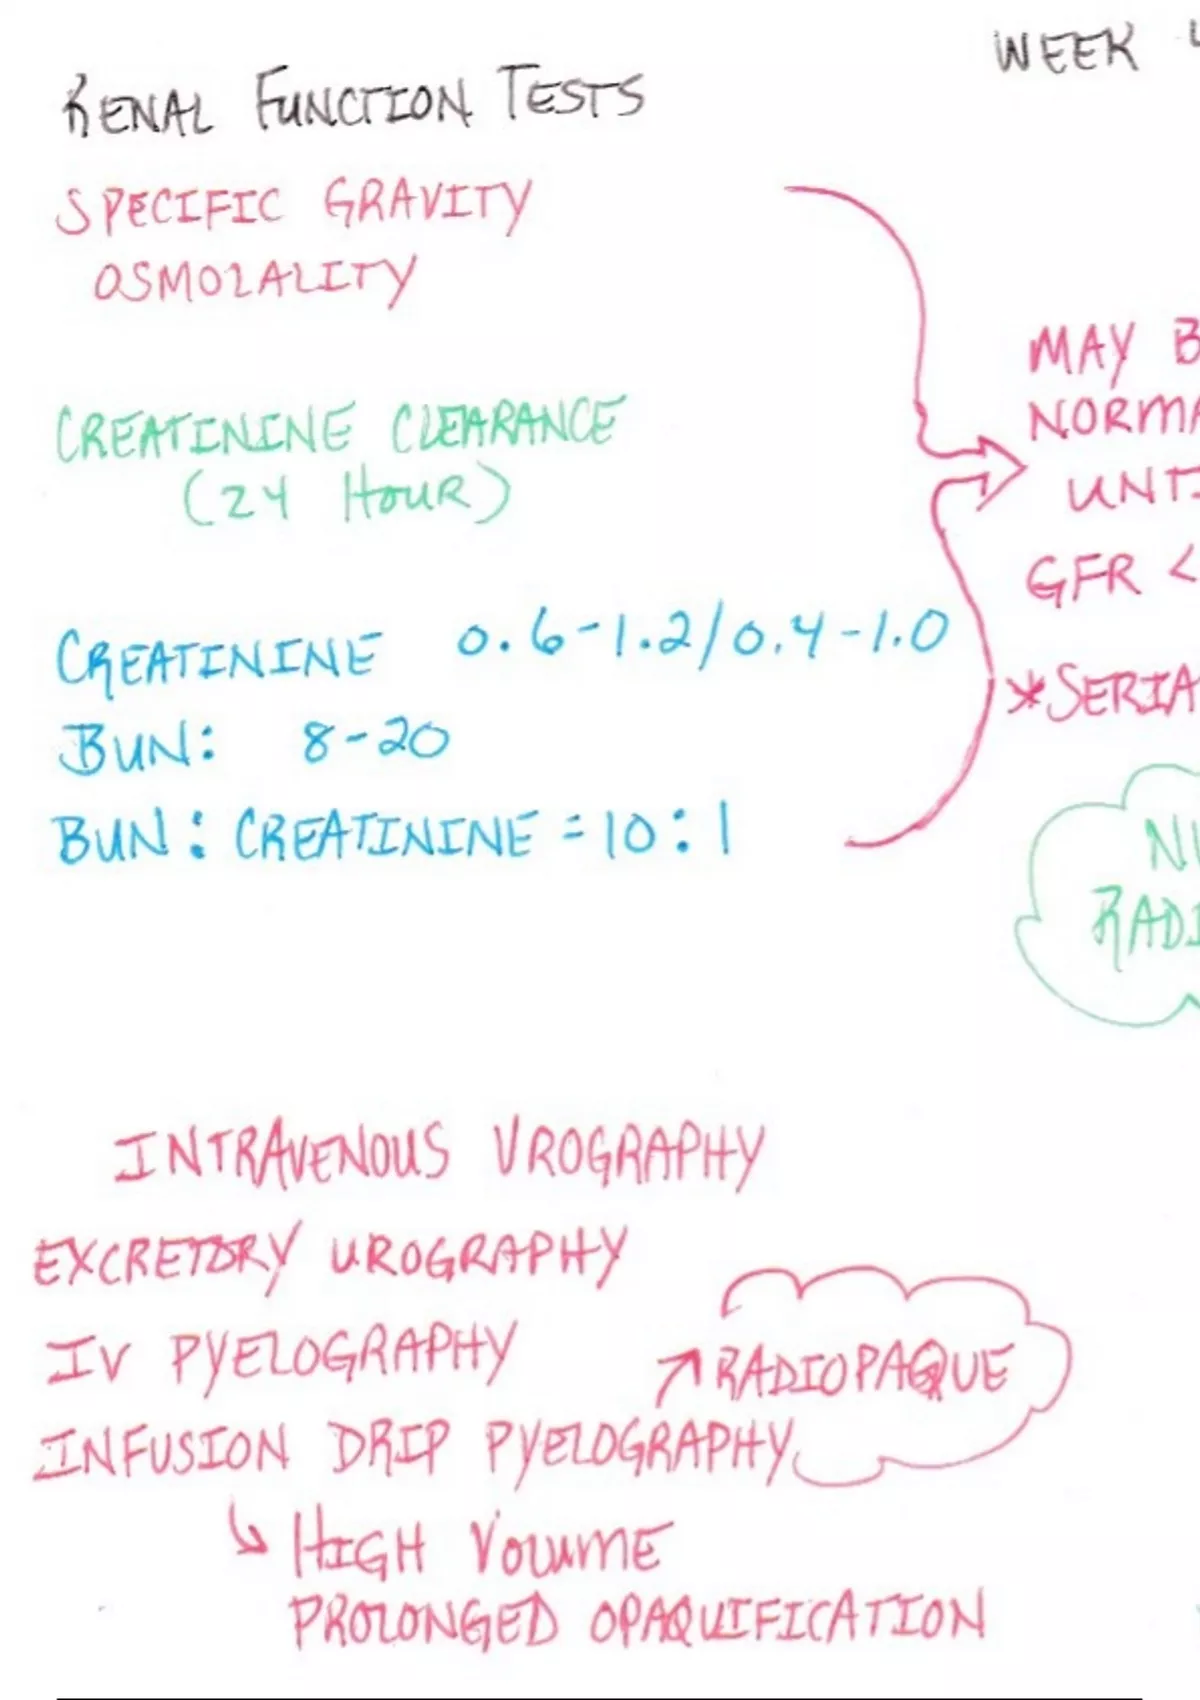 WEEK
RENAL FUNCTION TESTS
SPECIFIC GRAVITY
OSMOLALITY
MAY B
NORMA
UNTI
GFR <
*SERIA
CREATININE CLEARANCE
(24 HOUR)
CREATININE 0.6-1.2/0.4-1.0
BUN: 8-20
BUN: CREATININE = 10:1
RADI
INTRAVENOUS UROGRAPHY
EXCRETORY UROGRAPHY
IV PYELOGRAPHY
↗ RADIOPAQUE
INFUSION DRIP PYELOGRAPHY
↳ HIGH VOLUME
PROLONGED OPAQUIFICATION